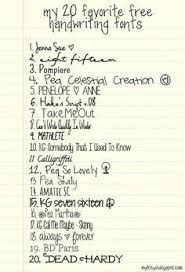 my 20 favorite free
handwriting fonts
1. Jenna Sue ♡
2. eight fifteen
3. Pompiere
4. Pea Celestial Creation
5. PENELOPE ♡ ANNE
6. Hoke's Script v.08
7. TakeMeOut
8. Can't Wait Quality In Wonder
9. MATHLETE
10. KG Somebody That I Used To Know
11. Calligraffiti
12. Peg So Lovely
13. Pea Shaly
14. AMATIC SC
15. KG seven sixteen
16. Pea Martha
17. KG Call Me Maybe - Skinny
18. always ♡ forever
19. BD Paris
20. DEAD HARDY